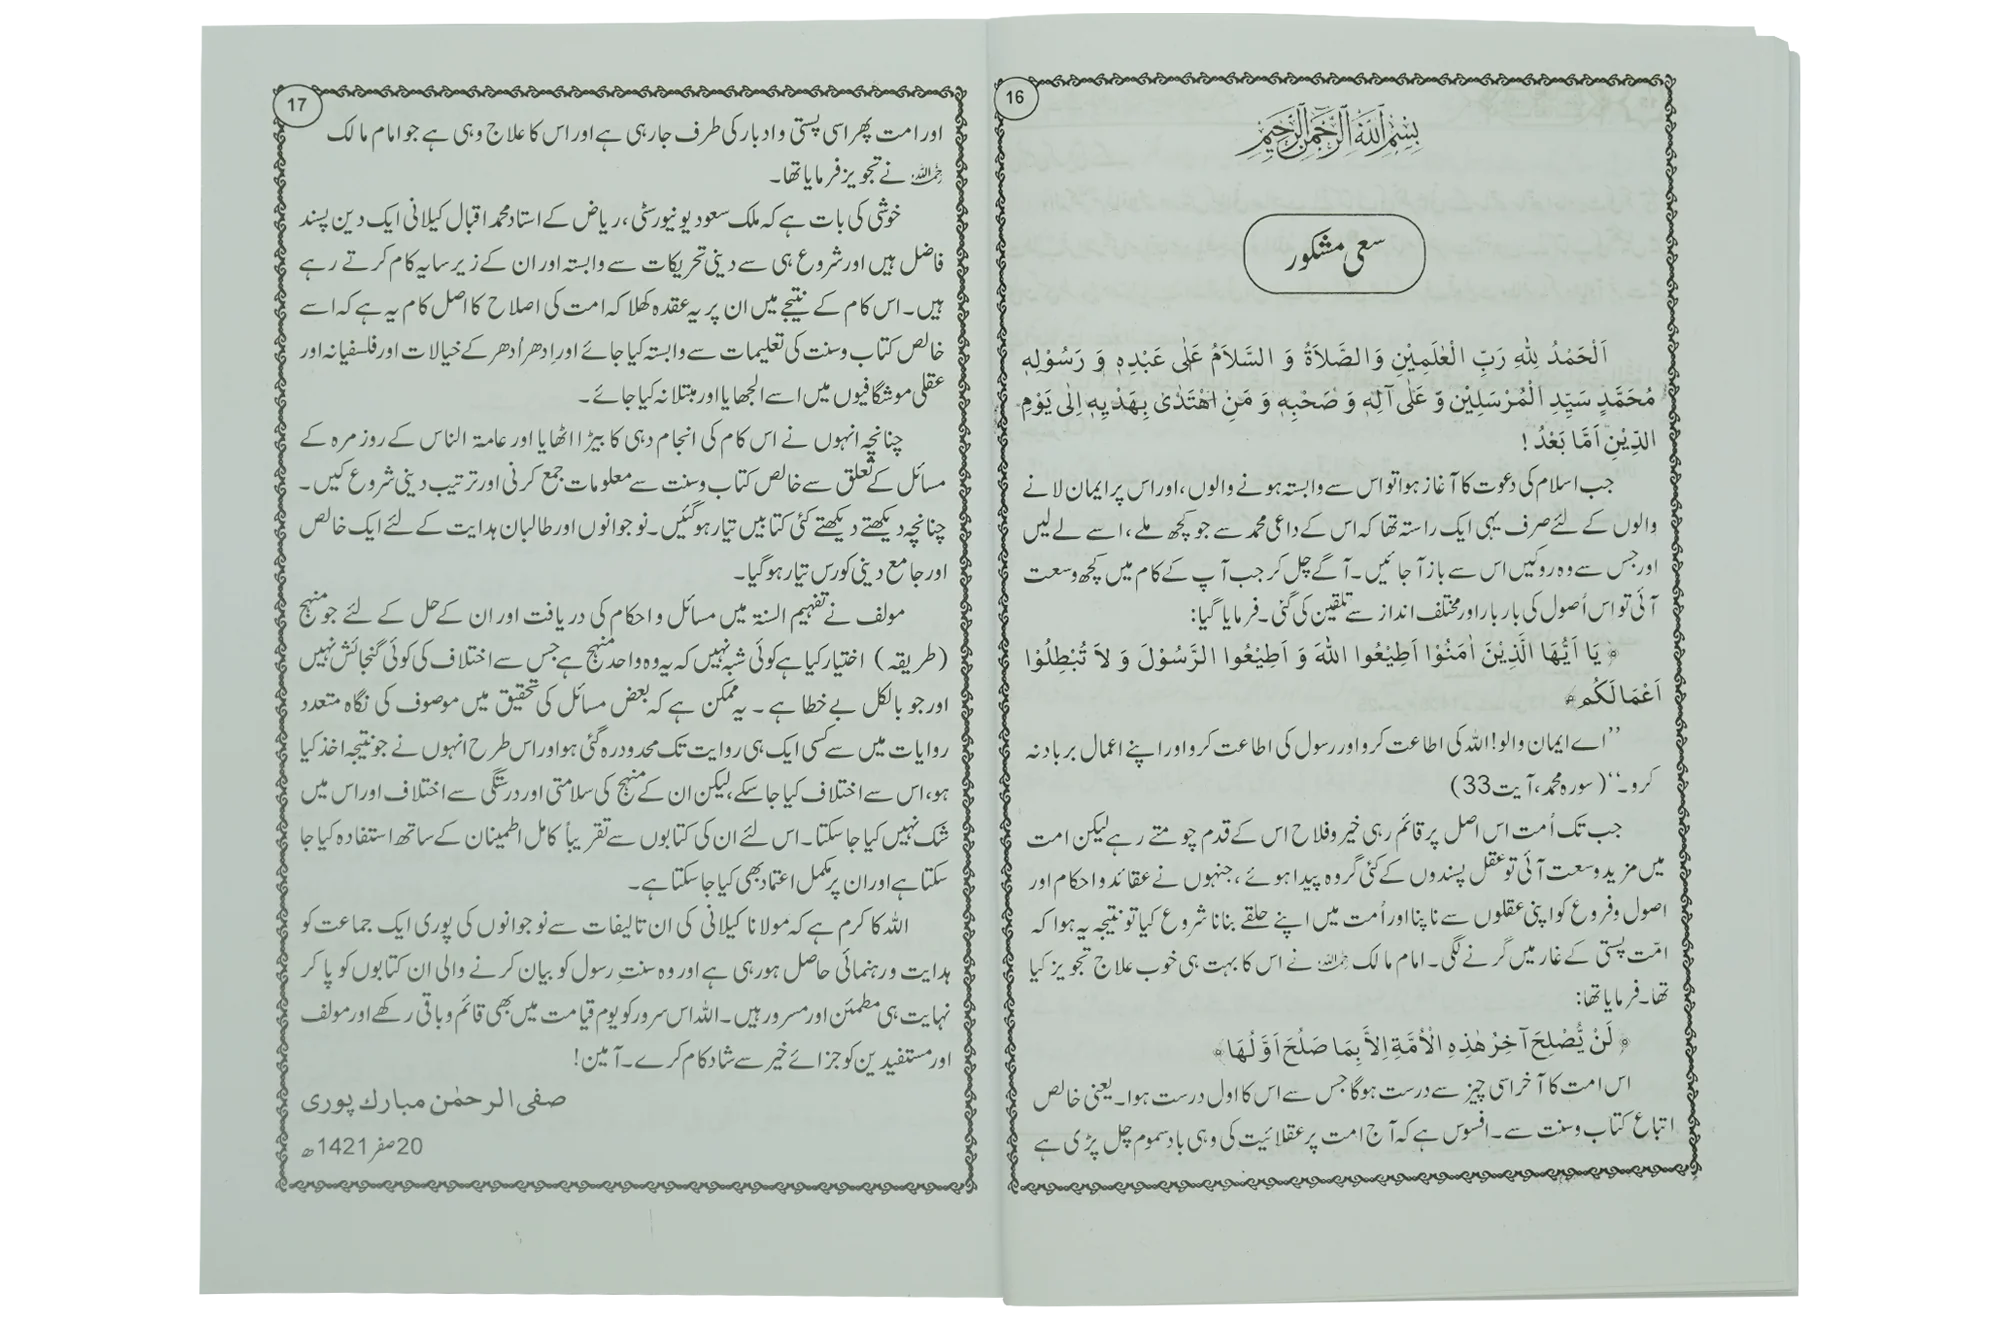 16
بِسْمِ اللهِ الرَّحْمٰنِ الرَّحِيْمِ
سعی مشکور
اَلْحَمْدُ لِلّٰهِ رَبِّ الْعٰلَمِيْنَ وَالصَّلَاةُ وَ السَّلَامُ عَلٰى عَبْدِهٖ وَ رَسُوْلِهٖ
مُحَمَّدٍ سَيِّدِ الْمُرْسَلِيْنَ وَ عَلٰى آلِهٖ وَ صَحْبِهٖ وَ مَنِ اهْتَدٰى بِهَدْيِهٖ اِلٰى يَوْمِ
الدِّيْنِ اَمَّا بَعْدُ !
جب اسلام کی دعوت کا آغاز ہوا تو اس سے وابستہ ہونے والوں، اور اس پر ایمان لانے
والوں کے لئے صرف یہی ایک راستہ تھا کہ اس کے داعی محمد سے جو کچھ ملے، اسے لے لیں
اور جس سے وہ روکیں اس سے باز آ جائیں۔ آگے چل کر جب آپ کے کام میں کچھ وسعت
آئی تو اس اُصول کی بار بار اور مختلف انداز سے تلقین کی گئی۔ فرمایا گیا:
﴿ يَا اَيُّهَا الَّذِيْنَ اٰمَنُوْا اَطِيْعُوا اللهَ وَ اَطِيْعُوا الرَّسُوْلَ وَ لاَ تُبْطِلُوْا
اَعْمَالَكُمْ ﴾
’’اے ایمان والو! اللہ کی اطاعت کرو اور رسول کی اطاعت کرو اور اپنے اعمال برباد نہ
کرو۔‘‘ (سورہ محمد، آیت 33)
جب تک اُمت اس اصل پر قائم رہی خیر و فلاح اس کے قدم چومتے رہے لیکن امت
میں مزید وسعت آئی تو عقل پسندوں کے کئی گروہ پیدا ہوئے، جنہوں نے عقائد و احکام اور
اصول و فروع کو اپنی عقلوں سے ناپنا اور اُمت میں اپنے حلقے بنانا شروع کیا تو نتیجہ یہ ہوا کہ
امّت پستی کے غار میں گرنے لگی۔ امام مالک رحمہ اللہ نے اس کا بہت ہی خوب علاج تجویز کیا
تھا۔ فرمایا تھا:
﴿ لَنْ يُّصْلِحَ آخِرُ هٰذِهِ الْاُمَّةِ اِلاَّ بِمَا صَلُحَ اَوَّلُهَا ﴾
اس امت کا آخر اسی چیز سے درست ہوگا جس سے اس کا اول درست ہوا۔ یعنی خالص
اتباع کتاب و سنت سے۔ افسوس ہے کہ آج امت پر عقلائیت کی وہی باد سموم چل پڑی ہے
17
اور امت پھر اسی پستی و ادبار کی طرف جا رہی ہے اور اس کا علاج وہی ہے جو امام مالک
رحمہ اللہ نے تجویز فرمایا تھا۔
خوشی کی بات ہے کہ ملک سعود یونیورسٹی، ریاض کے استاد محمد اقبال کیلانی ایک دین پسند
فاضل ہیں اور شروع ہی سے دینی تحریکات سے وابستہ اور ان کے زیر سایہ کام کرتے رہے
ہیں۔ اس کام کے نتیجے میں ان پر یہ عقدہ کھلا کہ امت کی اصلاح کا اصل کام یہ ہے کہ اسے
خالص کتاب و سنت کی تعلیمات سے وابستہ کیا جائے اور اِدھر اُدھر کے خیالات اور فلسفیانہ اور
عقلی موشگافیوں میں اسے الجھایا اور مبتلا نہ کیا جائے۔
چنانچہ انہوں نے اس کام کی انجام دہی کا بیڑا اٹھایا اور عامۃ الناس کے روز مرہ کے
مسائل کے تعلق سے خالص کتاب و سنت سے معلومات جمع کرنی اور ترتیب دینی شروع کیں۔
چنانچہ دیکھتے دیکھتے کئی کتابیں تیار ہوگئیں۔ نوجوانوں اور طالبان ہدایت کے لئے ایک خالص
اور جامع دینی کورس تیار ہوگیا۔
مولف نے تفہیم السنۃ میں مسائل و احکام کی دریافت اور ان کے حل کے لئے جو منہج
(طریقہ) اختیار کیا ہے کوئی شبہ نہیں کہ یہ وہ واحد منہج ہے جس سے اختلاف کی کوئی گنجائش نہیں
اور جو بالکل بے خطا ہے ۔ یہ ممکن ہے کہ بعض مسائل کی تحقیق میں موصوف کی نگاہ متعدد
روایات میں سے کسی ایک ہی روایت تک محدود رہ گئی ہو اور اس طرح انہوں نے جو نتیجہ اخذ کیا
ہو، اس سے اختلاف کیا جا سکے، لیکن ان کے منہج کی سلامتی اور درستگی سے اختلاف اور اس میں
شک نہیں کیا جا سکتا۔ اس لئے ان کی کتابوں سے تقریباً کامل اطمینان کے ساتھ استفادہ کیا جا
سکتا ہے اور ان پر مکمل اعتماد بھی کیا جا سکتا ہے۔
اللہ کا کرم ہے کہ مولانا کیلانی کی ان تالیفات سے نوجوانوں کی پوری ایک جماعت کو
ہدایت و رہنمائی حاصل ہو رہی ہے اور وہ سنتِ رسول کو بیان کرنے والی ان کتابوں کو پا کر
نہایت ہی مطمئن اور مسرور ہیں۔ اللہ اس سرور کو یوم قیامت میں بھی قائم و باقی رکھے اور مولف
اور مستفیدین کو جزائے خیر سے شاد کام کرے۔ آمین!
صفی الرحمٰن مبارک پوری
20 صفر 1421ھ